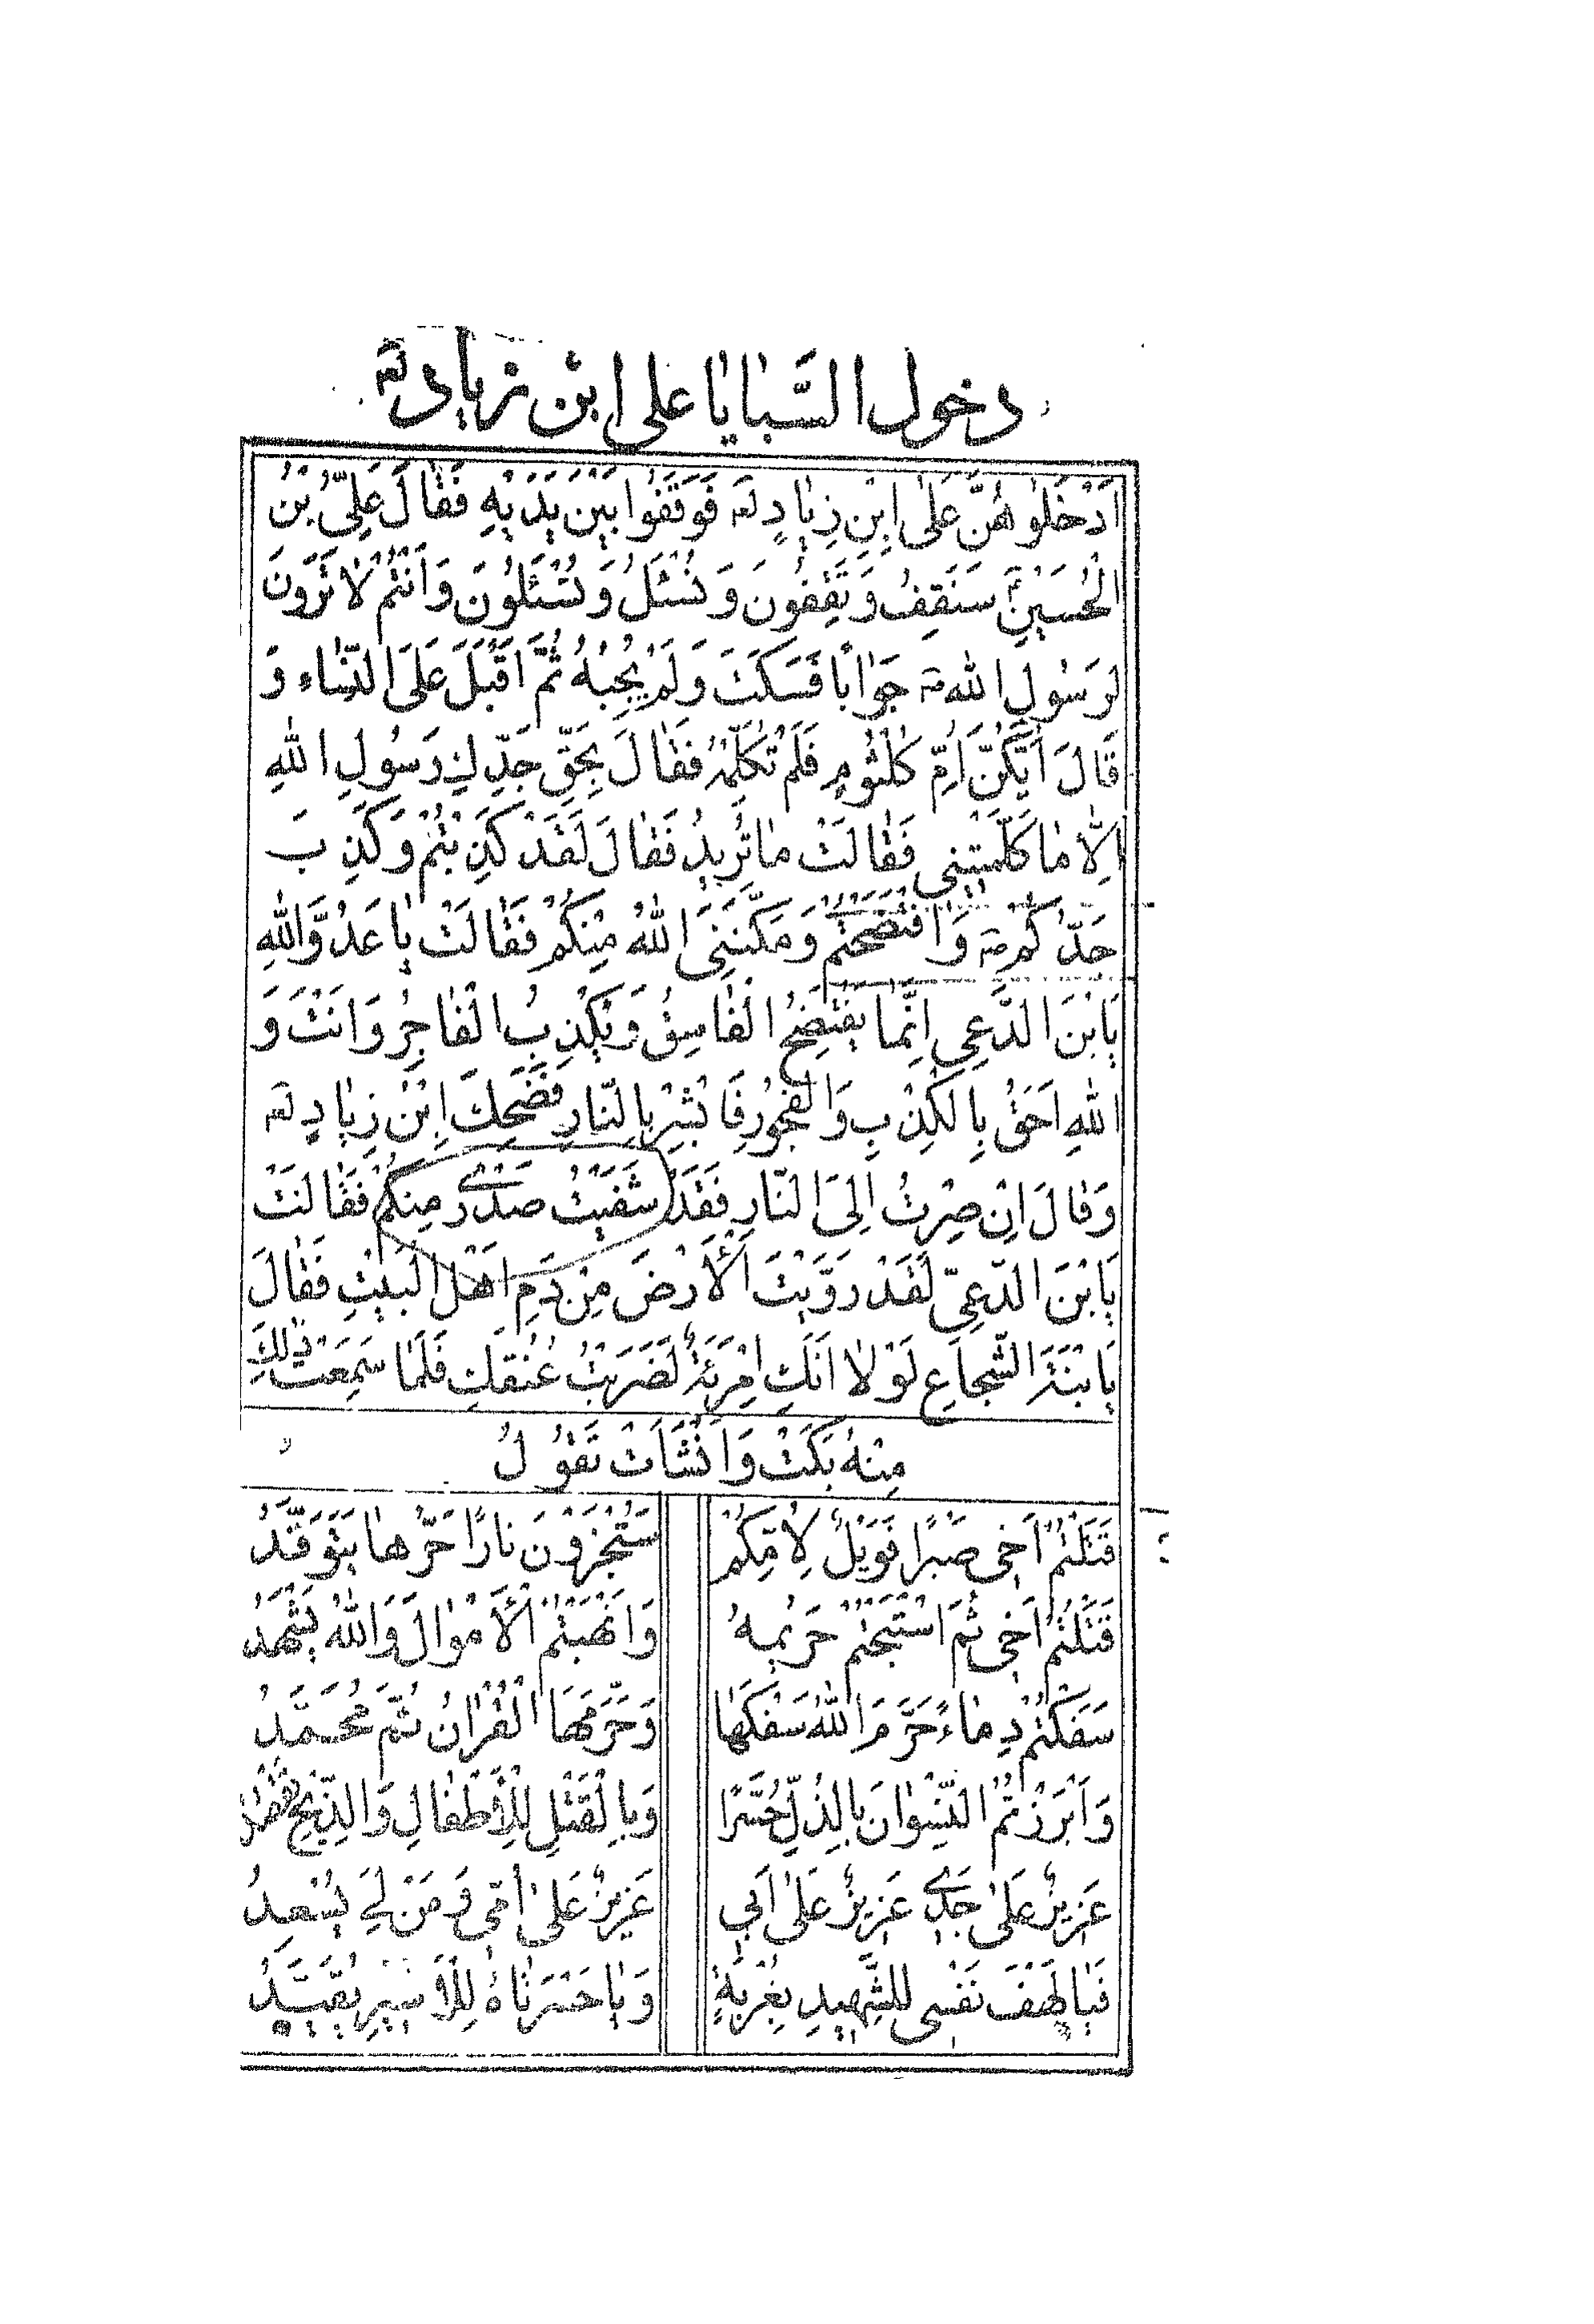 دخول السَّبايا على ابن زياد لعه
اَدْخَلُوهُنَّ عَلىٰ اِبْنِ زِيٰادٍ لعه فَوَقَفُوا بَيْنَ يَدَيْهِ فَقٰالَ عَلِىُّ بْنُ
الْحُسَيْنِ ع سَنَقِفُ وَتَقِفُونَ وَنُسْئَلُ وَتُسْئَلُونَ وَاَنْتُمْ لاٰ تَرُونَ
لِرَسُولِ اللهِ ص جَوٰابًا فَسَكَتَ وَلَمْ يُجِبْهُ ثُمَّ اَقْبَلَ عَلَى النِّسٰاءِ وَ
قَالَ اَيَّكُنَّ اُمِّ كُلْثُومٍ فَلَمْ تُكَلِّمْهُ فَقٰالَ بِحَقِّ جَدِّكِ رَسُولِ اللهِ
اِلاّٰ مٰا كَلَّمْتِينى فَقٰالَتْ مٰا تُرِيدُ فَقٰالَ لَقَدْ كَذِبْتُمْ وَكَذِبَ
جَدُّكُمْ ص وَافْتَضَحْتُمْ وَمَكَّنَنِىَ اللهُ مِنْكُمْ فَقٰالَتْ يٰا عَدُوَّ اللهِ
يَابْنَ الدَّعِى اِنَّمٰا يَفْتَضِحُ الْفٰاسِقُ وَيَكْذِبُ الْفٰاجِرُ وَاَنْتَ وَ
اللهِ اَحَقُ بِالْكِذْبِ وَالْفُجُورِ فَابْشِرْ بِالنّٰارِ فَضَحِكَ اِبْنُ زِيٰادٍ لعه
وَقٰالَ اِنْ صِرْتُ اِلَى النّٰارِ فَقَدْ شَفَيْتُ صَدْرى مِنْكُمْ فَقٰالَتْ
يَابْنَ الدَّعِىِّ لَقَدْ رَوَّيْتَ الْأَرْضَ مِنْ دَمِ اَهْلِ الْبَيْتِ فَقٰالَ
يَا بْنَةَ الشُّجٰاعِ لَوْلاٰ اَنَّكِ اِمْرَئَةٌ لَضَرَبْتُ عُنُقَكِ فَلَمّٰا سَمِعَتْ ذٰلِكَ
مِنْهُ بَكَتْ وَاَنْشَأَتْ تَقُولُ
قَتَلْتُمْ اَخى صَبْرًا فَوَيْلٌ لِأُمِّكُمْ سَتُجْزَوْنَ نارًا حَرُّهٰا يَتَوَقَّدُ
قَتَلْتُمْ اَخى ثُمَّ اسْتَبَحْتُمْ حَرِيمَهُ وَاَنْهَبْتُمُ الْأَمْوٰالَ وَاللهُ يَشْهَدُ
سَفَكْتُمْ دِمٰاءً حَرَّمَ اللهُ سَفْكَهٰا وَحَرَّمَهَا الْقُرْاٰنُ ثُمَّ مُحَمَّدُ
وَاَبْرَزْتُمُ النِّسْوٰانَ بِالذُّلِّ حُسَّرًا وَبِالْقَتْلِ لِلْأَطْفٰالِ وَالذَّبْحِ
عَزِيزٌ عَلىٰ جَدّى عَزِيزٌ عَلىٰ اَبى عَزِيزٌ عَلىٰ اُمّى وَمَنْ لِىَ يُسْعِدُ
فَيٰا لَهْفَ نَفْسى لِلشَّهِيدِ بِغُرْبَةٍ وَيٰا حَسْرَتٰاهُ لِلْأَسِيرِ يُقَيَّدُ